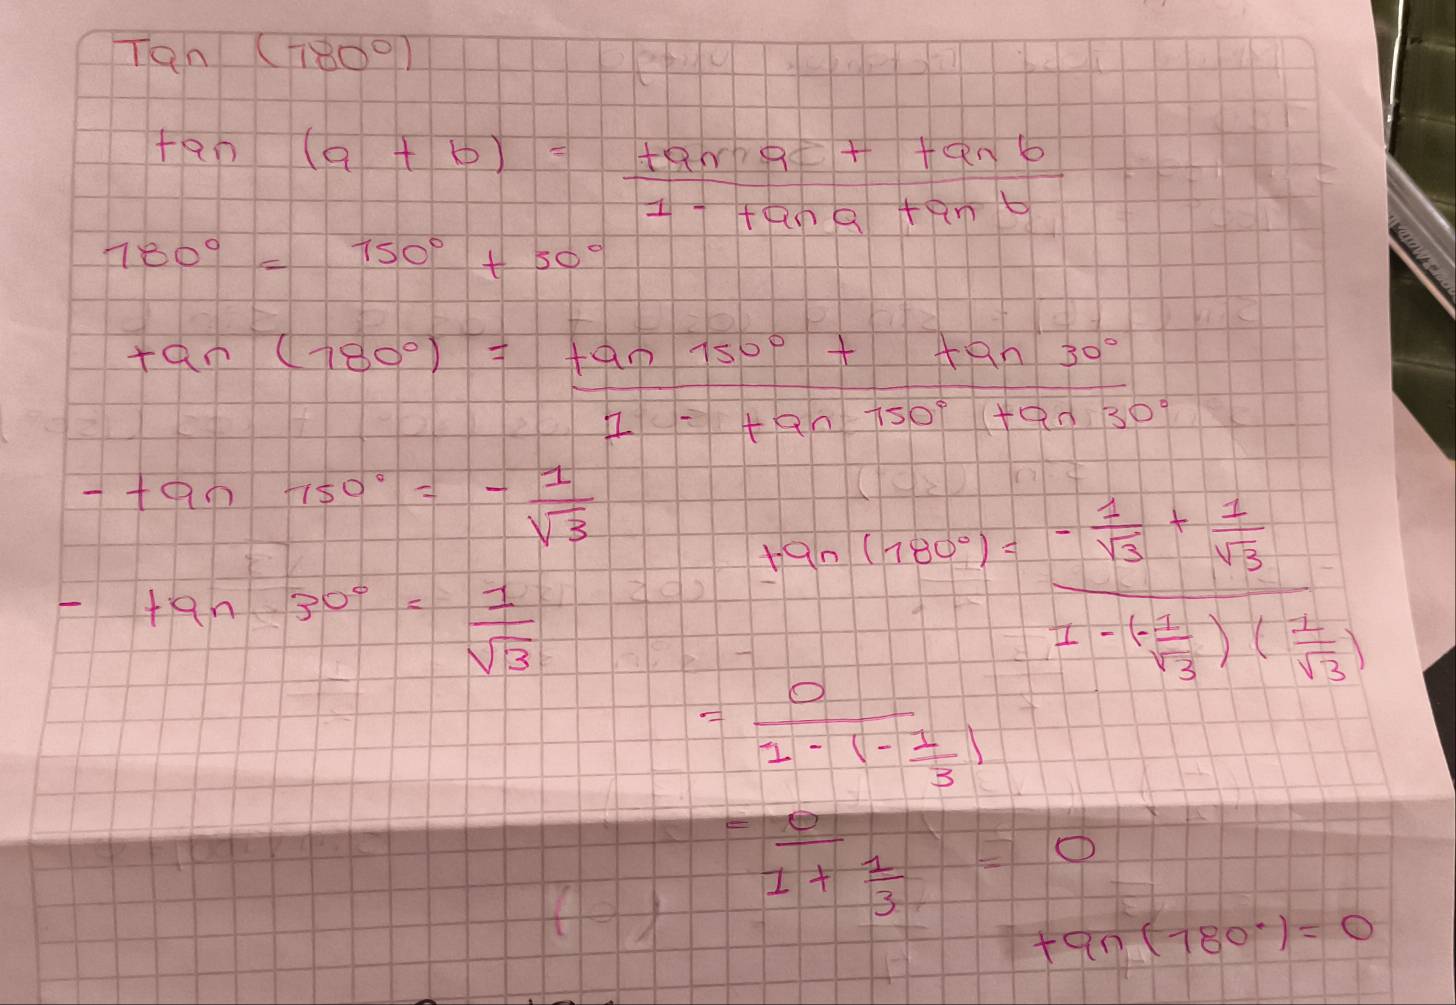 Tan (180°)
tan (a + b) = tan a + tan b
1 - tan a tan b
180° = 150° + 50°
tan (180°) = tan 150° + tan 30°
1 - tan 150° (tan 30°
- tan 150° = - 1/√3
tan (180°) = - 1/√3 + 1/√3
1 - (- 1/√3) (1/√3)
- tan 30° = 1/√3
= 0
1 - (- 1/3)
= 0
1 + 1/3 = 0
tan (180°) = 0